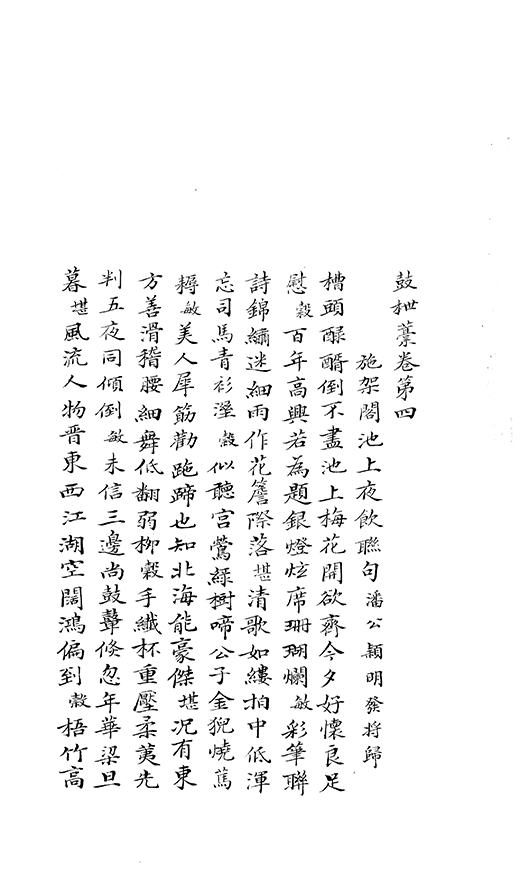 鼓枻藁卷第四
施架閣池上夜飲聯句潘公穎明發將歸
槽頭醁醑倒不盡池上梅花開欲齊今夕好懷良足
慰穀百年高興若為題銀燈炫席珊瑚爛敏彩筆聯
詩錦繡迷細雨作花簷際落堪清歌如縷拍中低渾
忘司馬青衫溼穀似聽宮鶯綠樹啼公子金猊燒蔦
耨敏美人犀筯勸跑蹄也知北海能豪傑堪况有東
方善滑稽腰細舞低翻弱柳穀手纖杯重壓柔荑先
判五夜同傾倒敏未信三邊尚鼓鼙倏忽年華梁旦
暮堪風流人物晋東西江湖空闊鴻偏到穀梧竹高